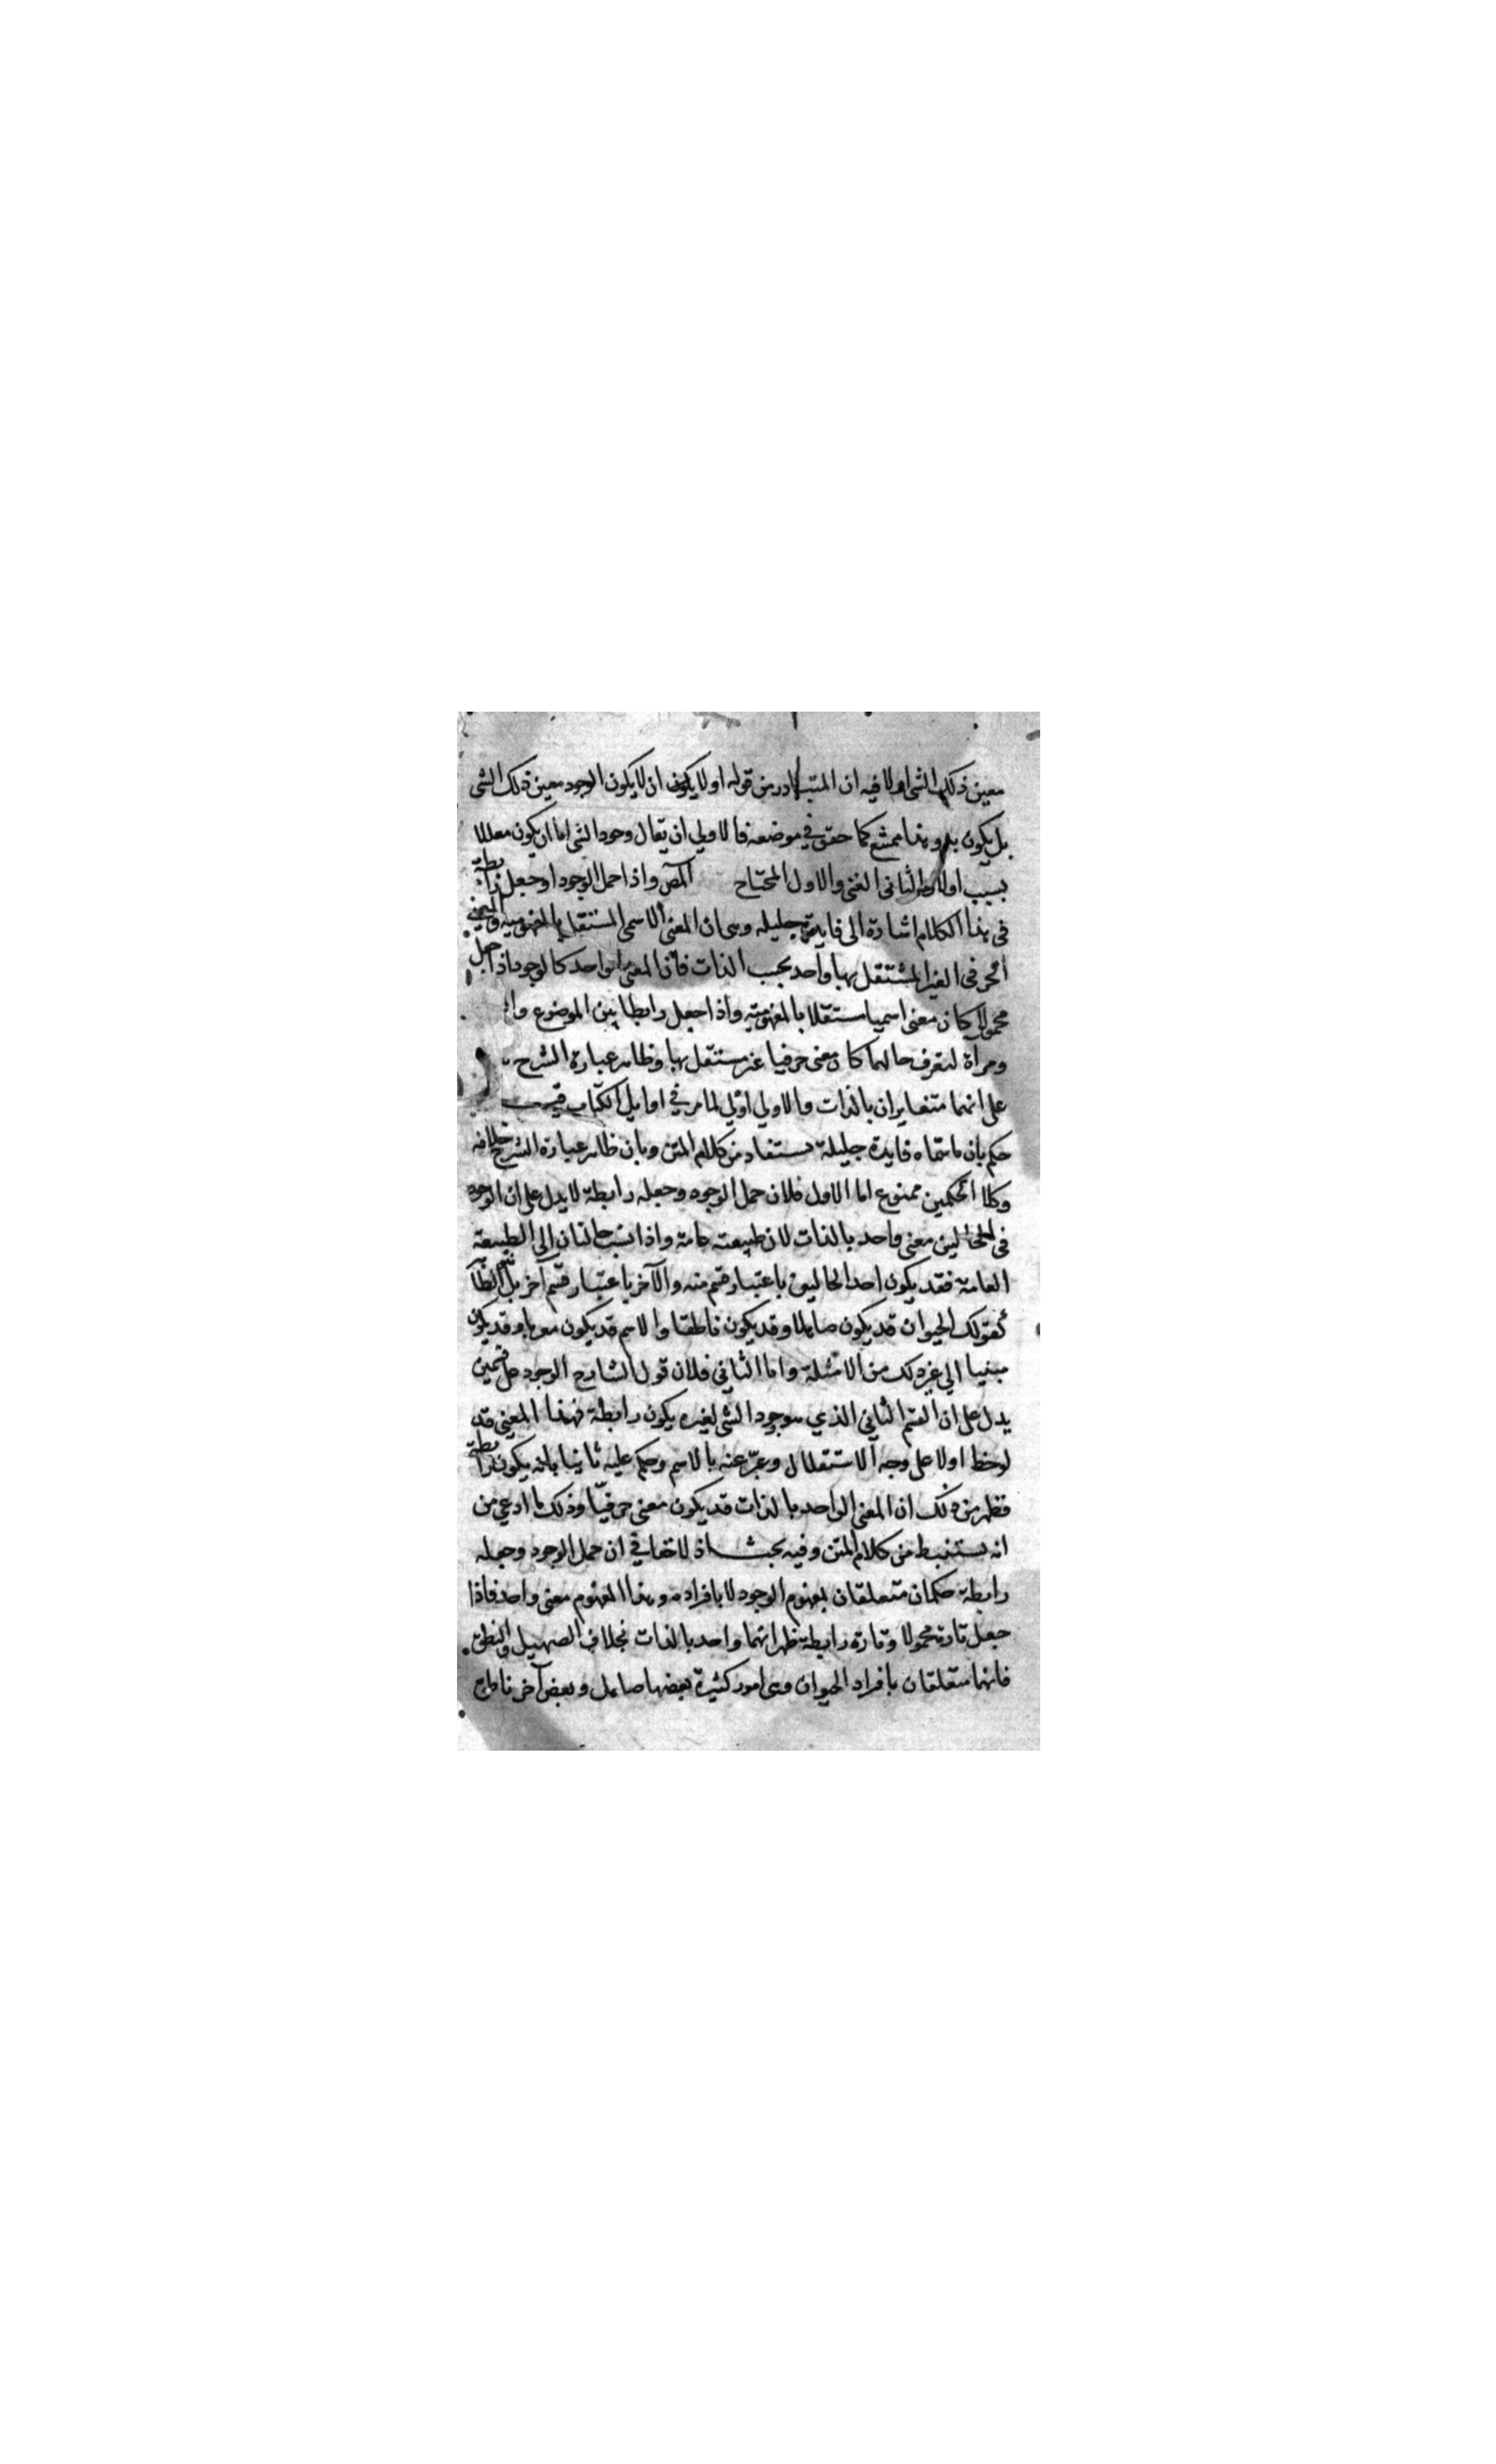 معين ذلك الشئ اولا فيه ان المتبادر من قوله او لا يكون ان لا يكون الوجود معين ذلك الشى
بل يكون بدونه وهذا ممتنع كما حقق في موضعه فالاولي ان يقال وجود الشى اما ان يكون معللا
بسبب اولا والثانى الغنى والاول المحتاج المص واذا حمل الوجود او جعل رابطة
فى هذا الكلام اشارة الى فايدة جليله وهى ان المعنى الاسمى المستقل بالمفهومية والمعنى
الحرفى الغير المستقل بها واحد بحسب الذات فان المعنى الواحد كالوجود اذا جعل
محمولا كان معنى اسميا مستقلا بالمفهومية واذا جعل رابطا بين الموضوع وا
ومرآة لتعرف حالهما كان معنى حرفيا غير مستقل بها وظاهر عبارة الشرح
على انهما متغايران بالذات والاولي اولي لما مر في اوايل الكتاب
حكم بان ما سماه فايدة جليلة مستفاد من كلام المتن وبان ظاهر عبارة الشرح خلافه
وكلا الحكمين ممنوع اما الاول فلان حمل الوجود وجعله رابطة لا يدل على ان الوجود
فى الحالين معنى واحد بالذات لان طبيعته عامة واذا نسب حالتان الى الطبيعة
العامة فقد يكون احد الحالين باعتبار قسم منه والآخر باعتبار قسم آخر
كقولك الحيوان قد يكون صاهلا وقد يكون ناطقا والاسم قد يكون معربا وقد يكون
مبنيا الي غير ذلك من الامثلة واما الثاني فلان قول الشارح الوجود على قسمين
يدل على ان القسم الثاني الذي هو وجود الشى لغيره يكون رابطة فهذا المعنى قد
لوحظ اولا على وجه الاستقلال وعبّر عنه بالاسم وحكم عليه ثانيا بانه يكون رابطة
فظهر من ذلك ان المعنى الواحد بالذات قد يكون معنى حرفيّا وذلك ما ادعي من
انه يستنبط من كلام المتن وفيه بحث اذ لا خفا في ان حمل الوجود وجعله
رابطة حكمان متعلقان بمفهوم الوجود لا بافراده وهذا المفهوم معنى واحد فاذا
جعل تارة محمولا وتارة رابطة ظهر انهما واحد بالذات بخلاف الصهيل والنطق
فانهما متعلقان بافراد الحيوان وهى امور كثيرة بعضها صاهل وبعض آخر